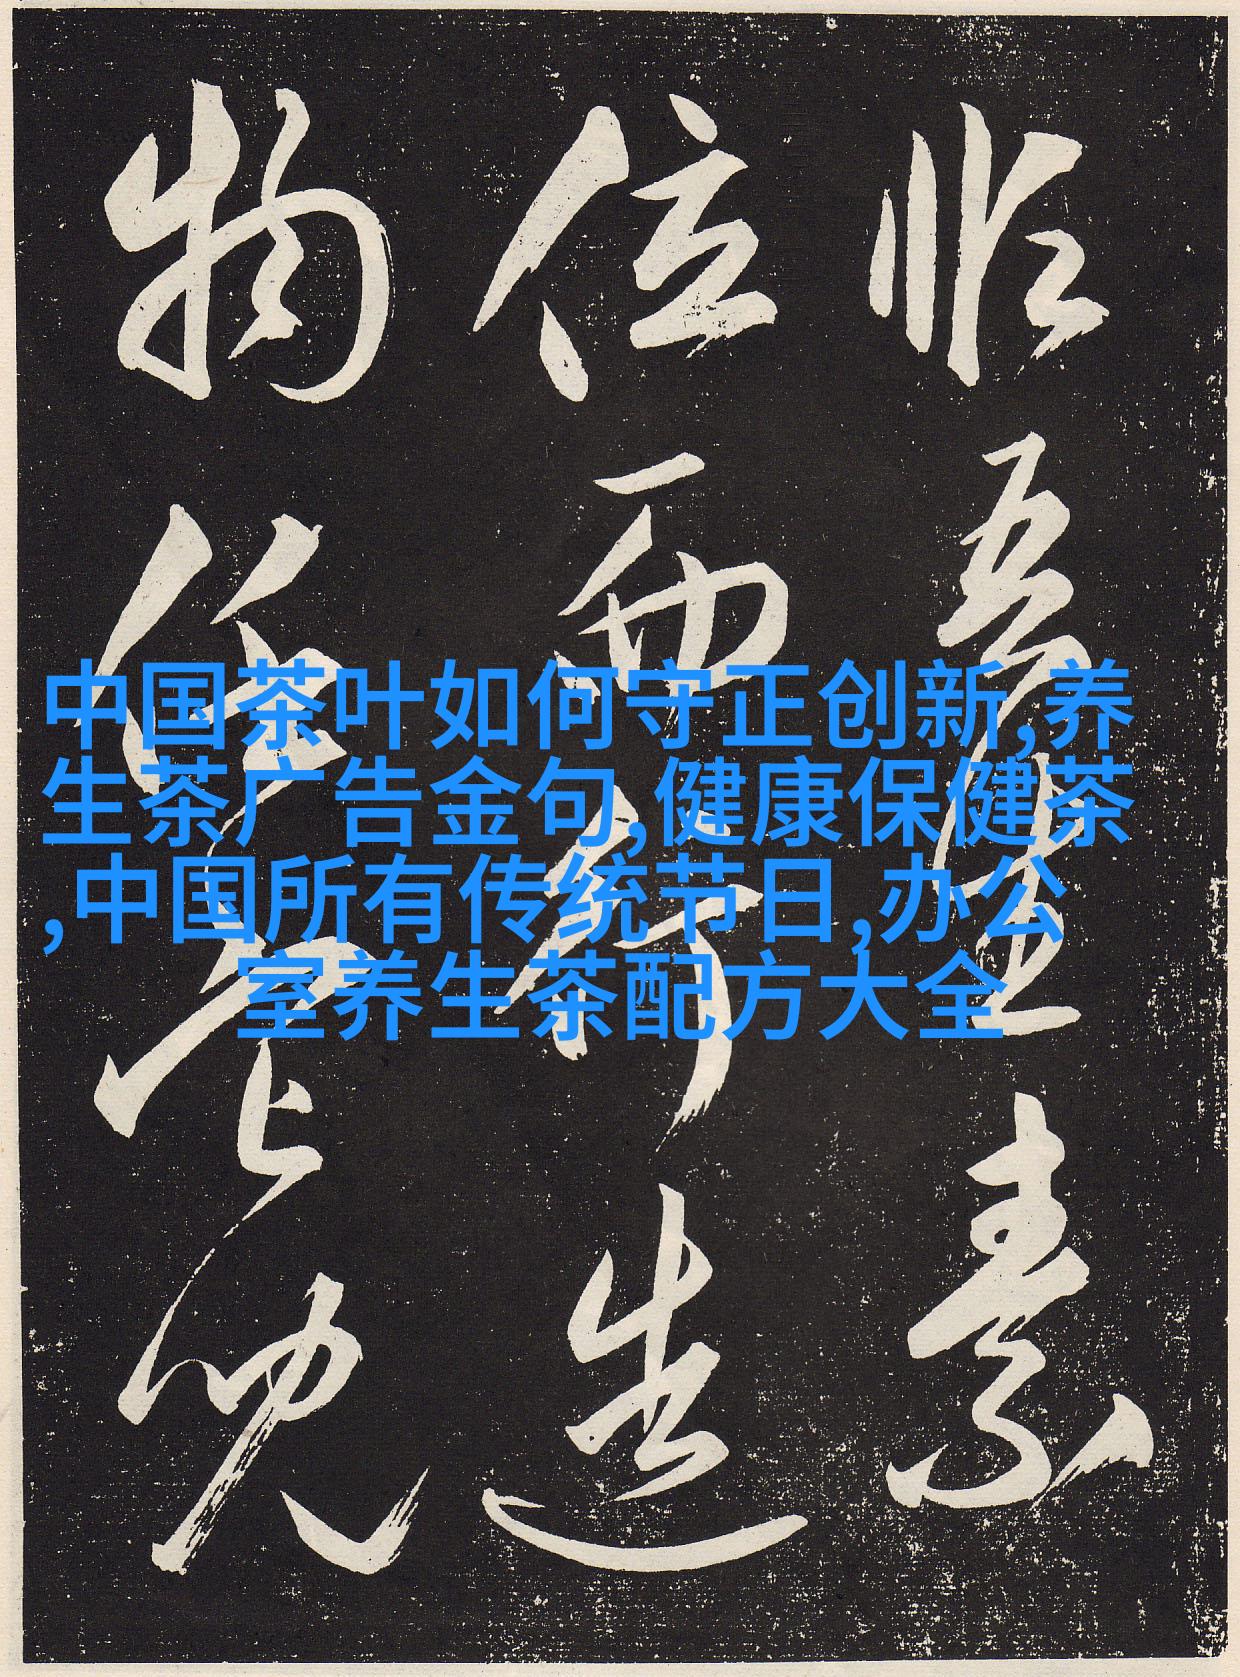 中国茶叶如何守正创新,养
生茶广告金句,健康保健茶
,中国所有传统节日,办公
室养生茶配方大全
吾素
位而行造
物